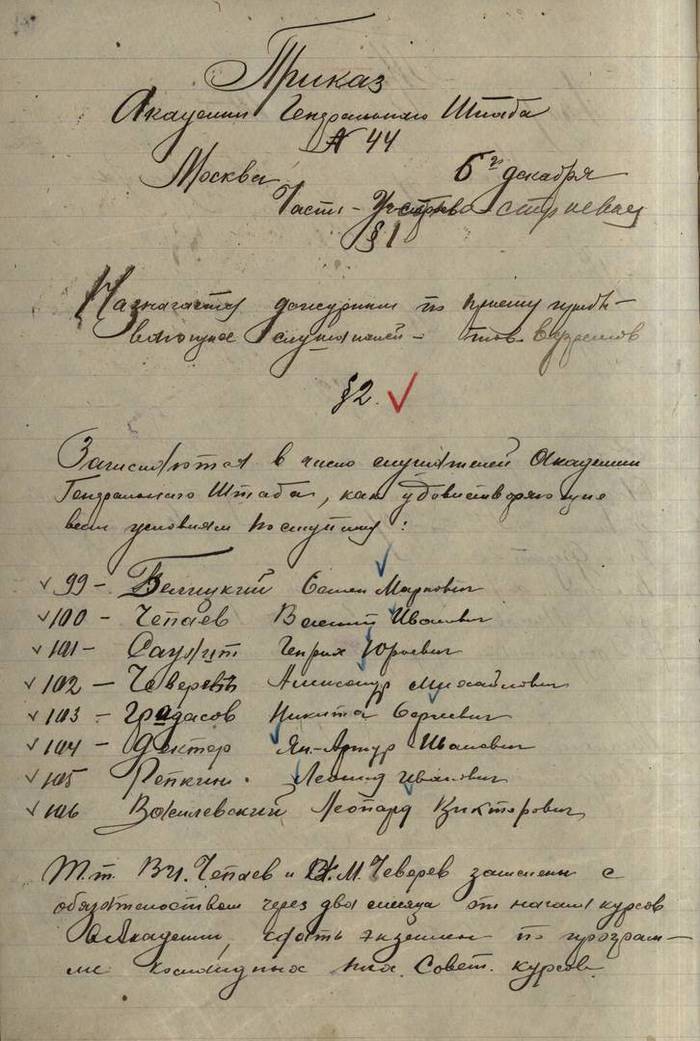 Приказ
Академии Генерального Штаба
№ 44
Москва 6го декабря
Часть - строевая
§ 1
Назначается дежурным по приему прибы-
вающих слушателей - тов.
§ 2.
Зачисляются в число слушателей Академии
Генерального Штаба, как удовлетворяющие
всем условиям поступ
99 - Белицкий Семен Маркович
100 - Чепаев Василий Иванович
101 - Саулит Генрих Юрьевич
102 - Чеверев Александр Михайлович
103 - Градасов Никита Сергеевич
104 - Дектер Ян-Артур Иванович
105 Репкин. Леонид Иванович
106 Василевский Леопард Викторович
Т.т. В.И. Чепаев и А.М. Чеверев зачислены с
обязательством через два месяца от начала курсов
в Академии, сдать экзамен по програм-
ме командных Совет. курсов.